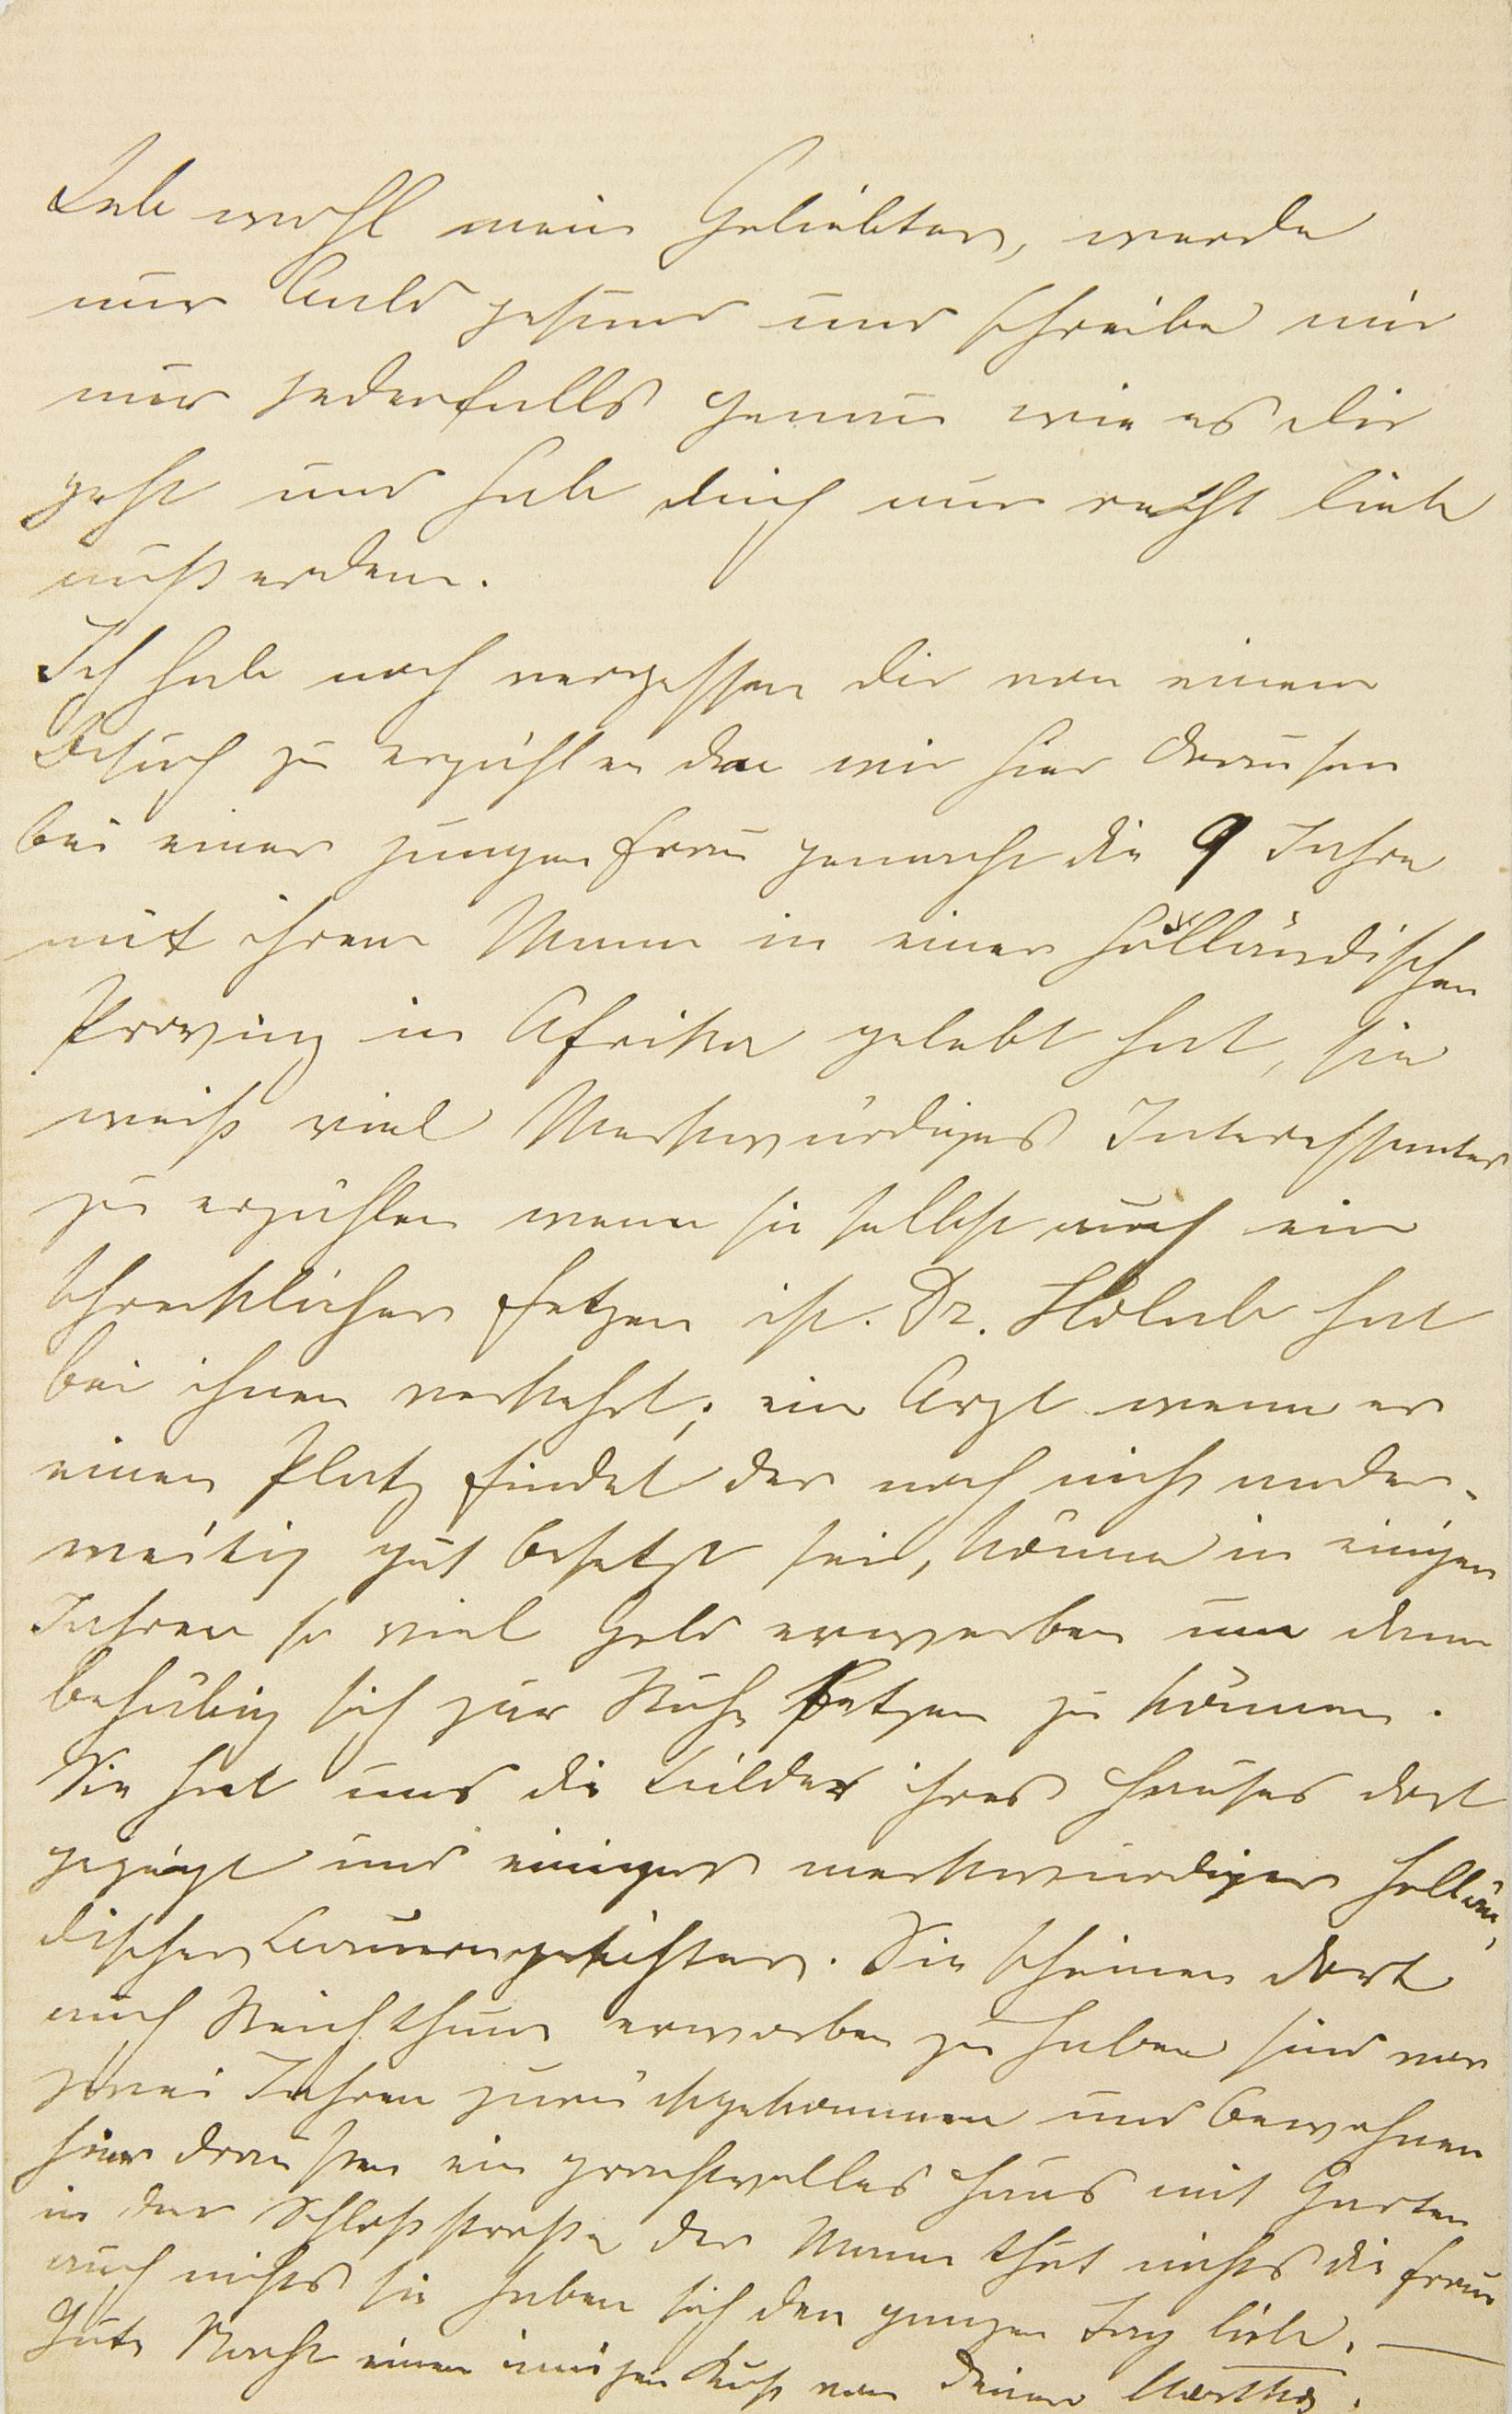 Leb wohl mein Geliebter, werde
nur bald gesund und schreibe mir
nur jedenfalls genau wie es dir
geht und hab dich nur recht lieb
außerdem.
Ich hab noch vergessen dir von einem
Besuch zu erzählen den wir hier draußen
bei einer jungen Frau gemacht die 9 Jahre
mit ihrem Mann in einer holländischen
Provinz in Afrika gelebt hat, sie
weiß viel Merkwürdiges Interessantes
zu erzählen wenn sie selbst auch ein
schrecklicher Fetzen ist. Dr. Holub hat
bei ihnen verkehrt; ein Arzt wenn er
einen Platz findet der noch nicht ander-
weitig gut besetzt sei, könne in einigen
Jahren so viel Geld erwerben um dann
behäbig sich zur Ruhe setzen zu können.
Sie hat uns die Bilder ihres Hauses dort
gezeigt und einiger merkwürdiger hollän-
discher Bauerngesichter. Sie scheinen dort
auch Reichthum erworben zu haben sind vor
zwei Jahren zurückgekommen und bewohnen
hier draußen ein prachtvolles Haus mit Garten
in der Schloßstraße der Mann thut nichts die Frau
auch nichts sie haben sich den ganzen Tag lieb. —
Gute Nacht einen innigen Kuß von Deiner Martha.